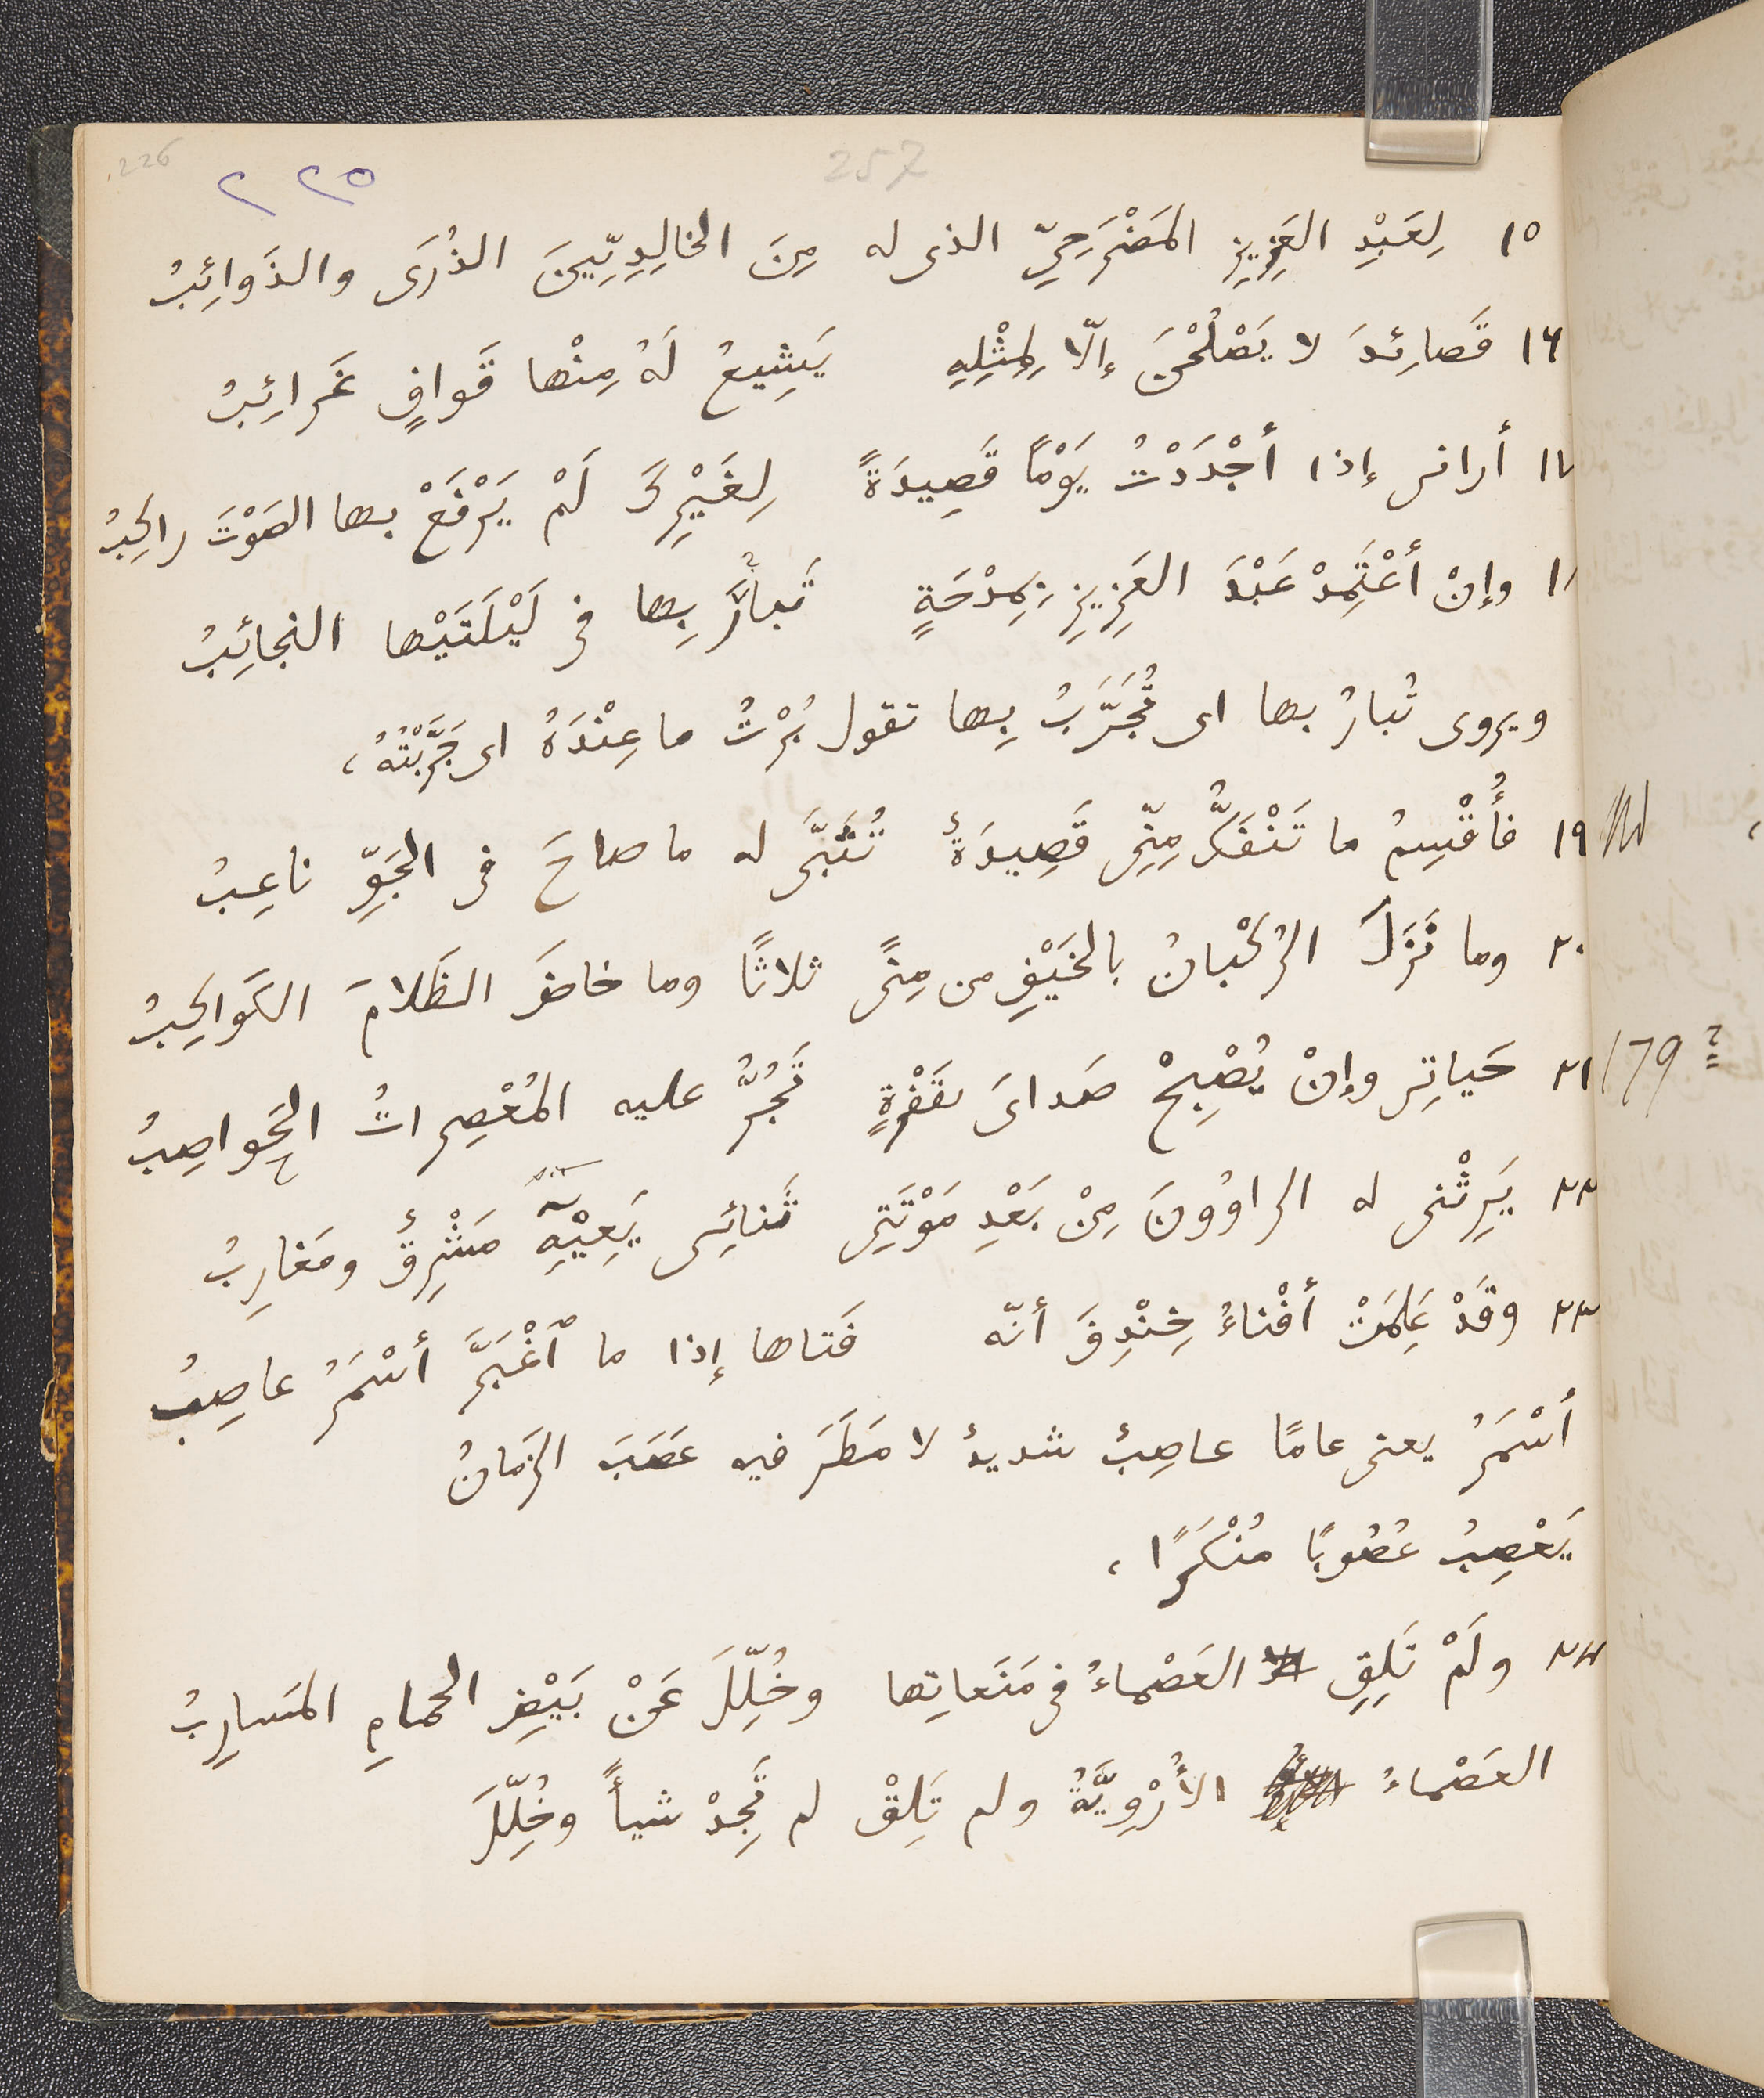 226
257
٢٢٥
١٥ لِعَبْدِ العَزِيزِ المَضْرَحِيِّ الذى له مِنَ الخالِدِيِّينَ الذُرَى والذَوائِبُ
١٦ قَصائِدَ لا يَصْلُحْنَ إلّا لِمِثْلِهِ يَشِيعُ لَهُ مِنْها قَوافٍ غَرائِبُ
١٧ أرانى إذا أجْدَدْتُ يَوْمًا قَصِيدَةً لِغَيْرِكَ لَمْ يَرْفَعْ بها الصَوْتَ راكِبُ
١٨ وإنْ أعْتَمِدْ عَبْدَ العَزِيزِ بِمِدْحَةٍ تَبارَ بِها فى لَيْلَتَيْها النجائِبُ
ويروى تُبارُ بها اى تُجَرَّبُ بِها تقول بُرْتُ ما عِنْدَهُ اى جَرَّبْتُهُ،
١٩ فأُقْسِمُ ما تَنْفَكُّ مِنّى قَصِيدَةٌ تُثَبَّى له ما صاحَ فى الجَوِّ ناعِبُ
٢٠ وما نَزَلَ الرُكْبانُ بالخَيْفِ من مِنًى ثلاثًا وما خاضَ الظَلامَ الكَواكِبُ
179 ?
٢١ حَياتِى وإنْ يُصْبِحْ صَداىَ بقَفْرَةٍ تَجُرُّ عليه المُعْصِراتُ الحَواصِبُ
٢٢ يَرِثْنى له الراوُونَ مِنْ بَعْدِ مَوْتَتِى ثَنائِى يَعِيْهِ مَشْرِقٌ ومَغارِبُ
٢٣ وقَدْ عَلِمَتْ أفْناءُ خِنْدِفَ أنّه فَتاها إذا ما ٱغْبَرَّ أسْمَرُ عاصِبُ
أسْمَرُ يعنى عامًا عاصِبٌ شديدٌ لا مَطَرَ فيه عَصَبَ الزَمانُ
يَعْصِبُ عُصُوبًا مُنْكَرًا،
٢٤ ولَمْ تَلِقِ العَصْماءُ فى مَنَعاتِها وخُلِّلَ عَنْ بَيْضِ الحمامِ المَسارِبُ
العَصْماءُ الأُرْوِيَّةُ ولم تَلِقْ لم تَجِدْ شيأً وخُلِّلَ